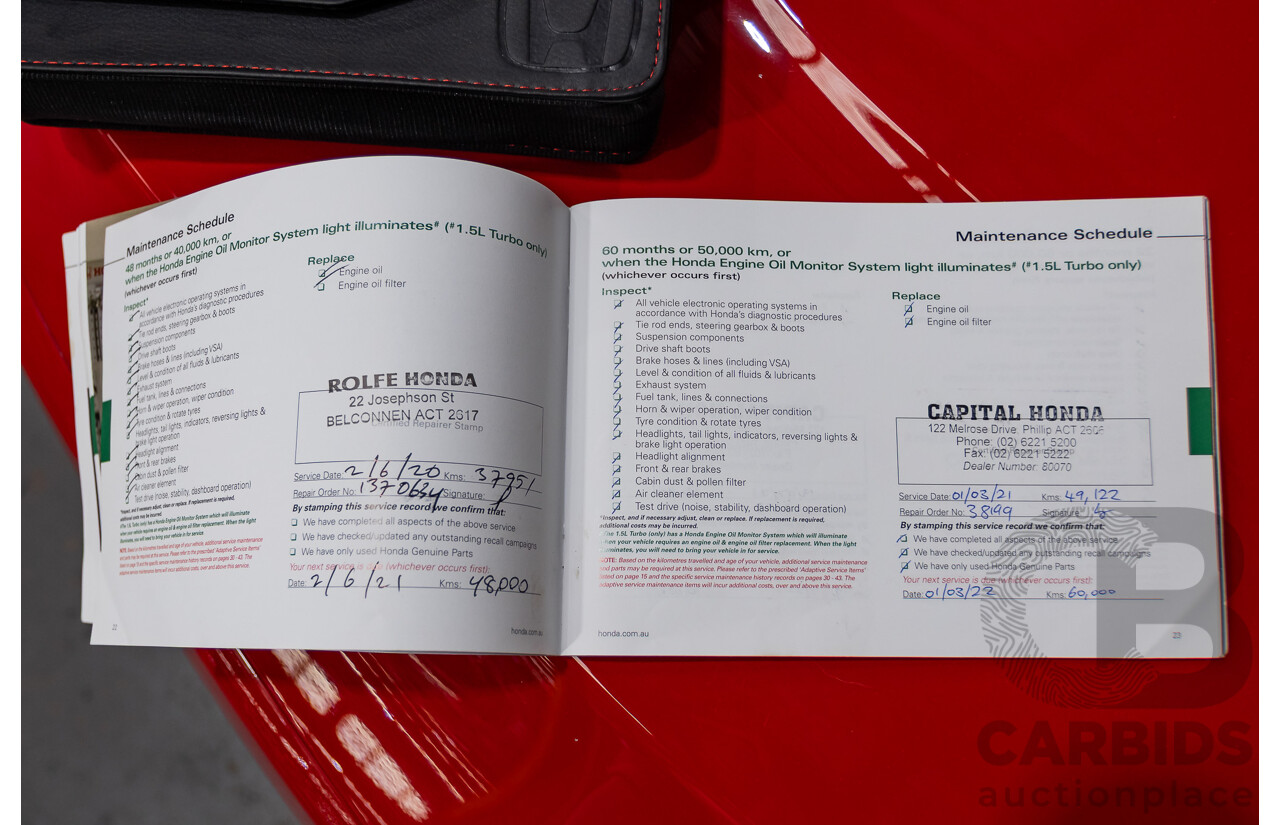 Maintenance Schedule
48 months or 40,000 km, or
when the Honda Engine Oil Monitor System light illuminates# (#1.5L Turbo only)
(whichever occurs first)
Inspect*
All vehicle electronic operating systems in
accordance with Honda's diagnostic procedures
Tie rod ends, steering gearbox & boots
Suspension components
Drive shaft boots
Brake hoses & lines (including VSA)
Level & condition of all fluids & lubricants
Exhaust system
Fuel tank, lines & connections
Horn & wiper operation, wiper condition
Tyre condition & rotate tyres
Headlights, tail lights, indicators, reversing lights &
brake light operation
Headlight alignment
Front & rear brakes
Cabin dust & pollen filter
Air cleaner element
Test drive (noise, stability, dashboard operation)
*Inspect, and if necessary adjust, clean or replace. If replacement is required,
additional costs may be incurred.
#The 1.5L Turbo only) has a Honda Engine Oil Monitor System which will illuminate
when your vehicle requires an engine oil & engine oil filter replacement. When the light
illuminates, you will need to bring your vehicle in for service.
NOTE: Based on the kilometres travelled and age of your vehicle, additional service maintenance
and parts may be required at this service. Please refer to the prescribed 'Adaptive Service Items'
listed on page 15 and the specific service maintenance history records on pages 30 - 43. The
adaptive service maintenance items will incur additional costs, over and above this service.
Replace
Engine oil
Engine oil filter
ROLFE HONDA
22 Josephson St
BELCONNEN ACT 2617
Certified Repairer Stamp
Service Date: 2/6/20 Kms: 37951
Repair Order No: 1370634 Signature:
By stamping this service record we confirm that:
We have completed all aspects of the above service
We have checked/updated any outstanding recall campaigns
We have only used Honda Genuine Parts
Your next service is due (whichever occurs first):
Date: 2/6/21 Kms: 48,000
22
honda.com.au
Maintenance Schedule
60 months or 50,000 km, or
when the Honda Engine Oil Monitor System light illuminates# (#1.5L Turbo only)
(whichever occurs first)
Inspect*
All vehicle electronic operating systems in
accordance with Honda's diagnostic procedures
Tie rod ends, steering gearbox & boots
Suspension components
Drive shaft boots
Brake hoses & lines (including VSA)
Level & condition of all fluids & lubricants
Exhaust system
Fuel tank, lines & connections
Horn & wiper operation, wiper condition
Tyre condition & rotate tyres
Headlights, tail lights, indicators, reversing lights &
brake light operation
Headlight alignment
Front & rear brakes
Cabin dust & pollen filter
Air cleaner element
Test drive (noise, stability, dashboard operation)
*Inspect, and if necessary adjust, clean or replace. If replacement is required,
additional costs may be incurred.
#The 1.5L Turbo only) has a Honda Engine Oil Monitor System which will illuminate
when your vehicle requires an engine oil & engine oil filter replacement. When the light
illuminates, you will need to bring your vehicle in for service.
NOTE: Based on the kilometres travelled and age of your vehicle, additional service maintenance
and parts may be required at this service. Please refer to the prescribed 'Adaptive Service Items'
listed on page 15 and the specific service maintenance history records on pages 30 - 43. The
adaptive service maintenance items will incur additional costs, over and above this service.
Replace
Engine oil
Engine oil filter
CAPITAL HONDA
122 Melrose Drive, Phillip ACT 2606
Phone: (02) 6221 5200
Fax: (02) 6221 5222
Dealer Number: 80070
Service Date: 01/03/21 Kms: 49,122
Repair Order No: 38199 Signature:
By stamping this service record we confirm that:
We have completed all aspects of the above service
We have checked/updated any outstanding recall campaigns
We have only used Honda Genuine Parts
Your next service is due (whichever occurs first):
Date: 01/03/22 Kms: 60,000
honda.com.au
23
CARBIDS
auctionplace